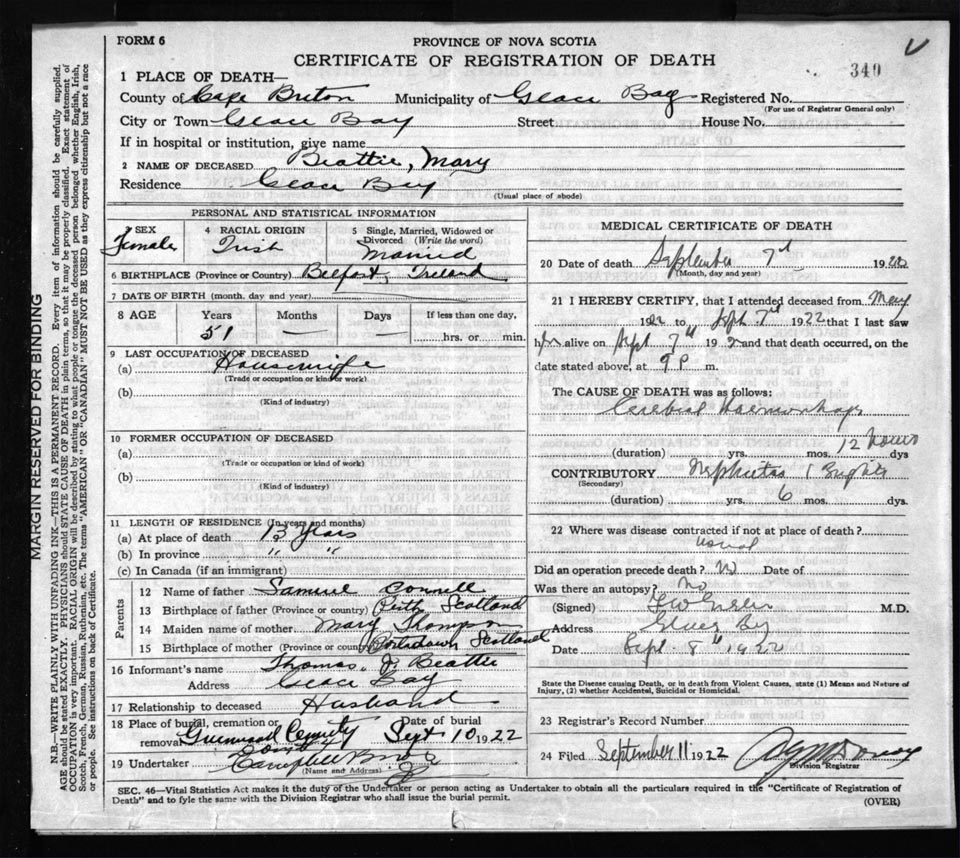 FORM 6
PROVINCE OF NOVA SCOTIA
CERTIFICATE OF REGISTRATION OF DEATH
349
1 PLACE OF DEATH—
County of Cape Breton Municipality of Glace Bay Registered No.
(For use of Registrar General only)
City or Town Glace Bay Street House No.
If in hospital or institution, give name
2 NAME OF DECEASED Beattie, Mary
Residence Glace Bay
(Usual place of abode)
PERSONAL AND STATISTICAL INFORMATION
3 SEX Female
4 RACIAL ORIGIN Irish
5 Single, Married, Widowed or Divorced (Write the word) Married
6 BIRTHPLACE (Province or Country) Belfast, Ireland
7 DATE OF BIRTH (month, day and year)
8 AGE Years Months Days If less than one day,
51 — — hrs. or min.
9 LAST OCCUPATION OF DECEASED
(a) Housewife
(Trade or occupation or kind of work)
(b)
(Kind of industry)
10 FORMER OCCUPATION OF DECEASED
(a)
(Trade or occupation or kind of work)
(b)
(Kind of industry)
11 LENGTH OF RESIDENCE (In years and months)
(a) At place of death 13 years
(b) In province " "
(c) In Canada (if an immigrant)
Parents
12 Name of father Samuel Connell
13 Birthplace of father (Province or country) Scotland
14 Maiden name of mother Mary Thompson
15 Birthplace of mother (Province or country) Scotland
16 Informant's name Thomas J Beattie
Address Glace Bay
17 Relationship to deceased Husband
18 Place of burial, cremation or removal Greenwood Date of burial Sept 10 1922
19 Undertaker Campbell
(Name and Address)
MEDICAL CERTIFICATE OF DEATH
20 Date of death September 7 1922
(Month, day and year)
21 I HEREBY CERTIFY, that I attended deceased from May
1922 to Sept 7 1922 that I last saw
her alive on Sept 7 19 and that death occurred, on the
date stated above, at 9 P m.
The CAUSE OF DEATH was as follows:
Cerebral Haemorrhage
(duration) yrs. mos. 12 hours dys
CONTRIBUTORY Nephritis
(Secondary)
(duration) yrs. 6 mos. dys.
22 Where was disease contracted if not at place of death?
usual
Did an operation precede death? No Date of
Was there an autopsy? No
(Signed) M.D.
Address Glace Bay
Date Sept. 8 1922
State the Disease causing Death, or in death from Violent Causes, state (1) Means and Nature of
Injury, (2) whether Accidental, Suicidal or Homicidal.
23 Registrar's Record Number
24 Filed September 11 1922
Division Registrar
SEC. 46—Vital Statistics Act makes it the duty of the Undertaker or person acting as Undertaker to obtain all the particulars required in the "Certificate of Registration of
Death" and to fyle the same with the Division Registrar who shall issue the burial permit.
(OVER)
MARGIN RESERVED FOR BINDING
N.B.—WRITE PLAINLY WITH UNFADING INK—THIS IS A PERMANENT RECORD. Every item of information should be carefully supplied.
AGE should be stated EXACTLY. PHYSICIANS should STATE CAUSE OF DEATH in plain terms, so that it may be properly classified. Exact statement of
OCCUPATION is very important. RACIAL ORIGIN will be described by stating to what people or tongue the deceased person belonged whether English, Irish,
Scotch, French, German, Russian, Ruthenian, etc. The terms "AMERICAN" OR "CANADIAN" MUST NOT BE USED as they express citizenship but not a race
or people. See instructions on back of Certificate.